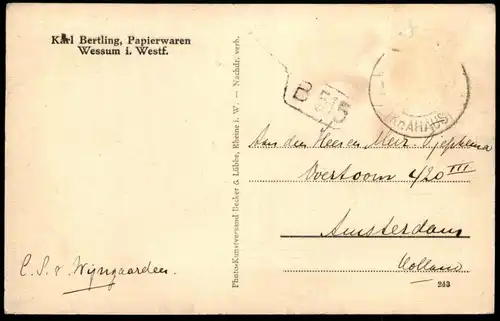 Karl Bertling, Papierwaren
Wessum i. Westf.
Photo-Kunstversand Becker & Lübbe, Rheine i. W. — Nachdr. verb.
B
(KR. AHAUS)
Aan den Heer en Mevr. Tjeptema
Overtoom 420 III
Amsterdam
Holland
C. S. v Wijngaarden.
243